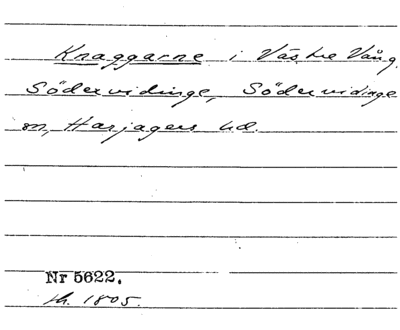 Knaggarne i Västra Vång,
Södervidinge, Södervidinge
sn, Harjagers hd.
Nr 5622.
sk. 1805.